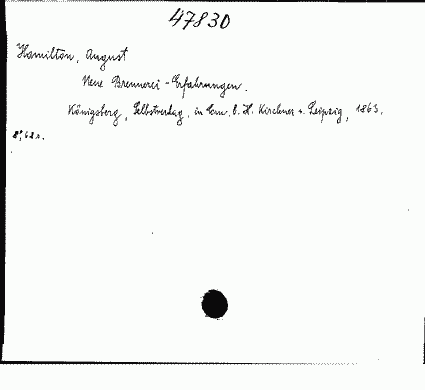 47830
Hamilton, August
Neue Brennerei-Erfahrungen.
Königsberg, Selbstverlag, in Com. b. H. Kirchner i. Leipzig, 1863.
8°, 62 s.